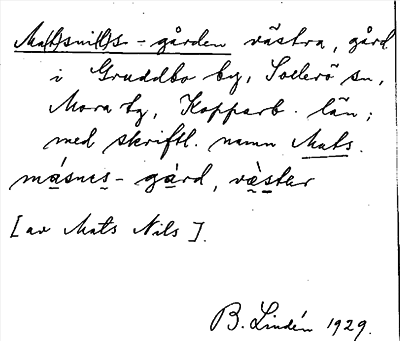 Ma(t)sni(l)s-gården västra, gård
i Gruddbo by, Sollerö sn,
Mora tg, Kopparb. län;
med skriftl. namn Mats.
másnis-gárd, vàster
[av Mats Nils].
B. Lindén 1929.